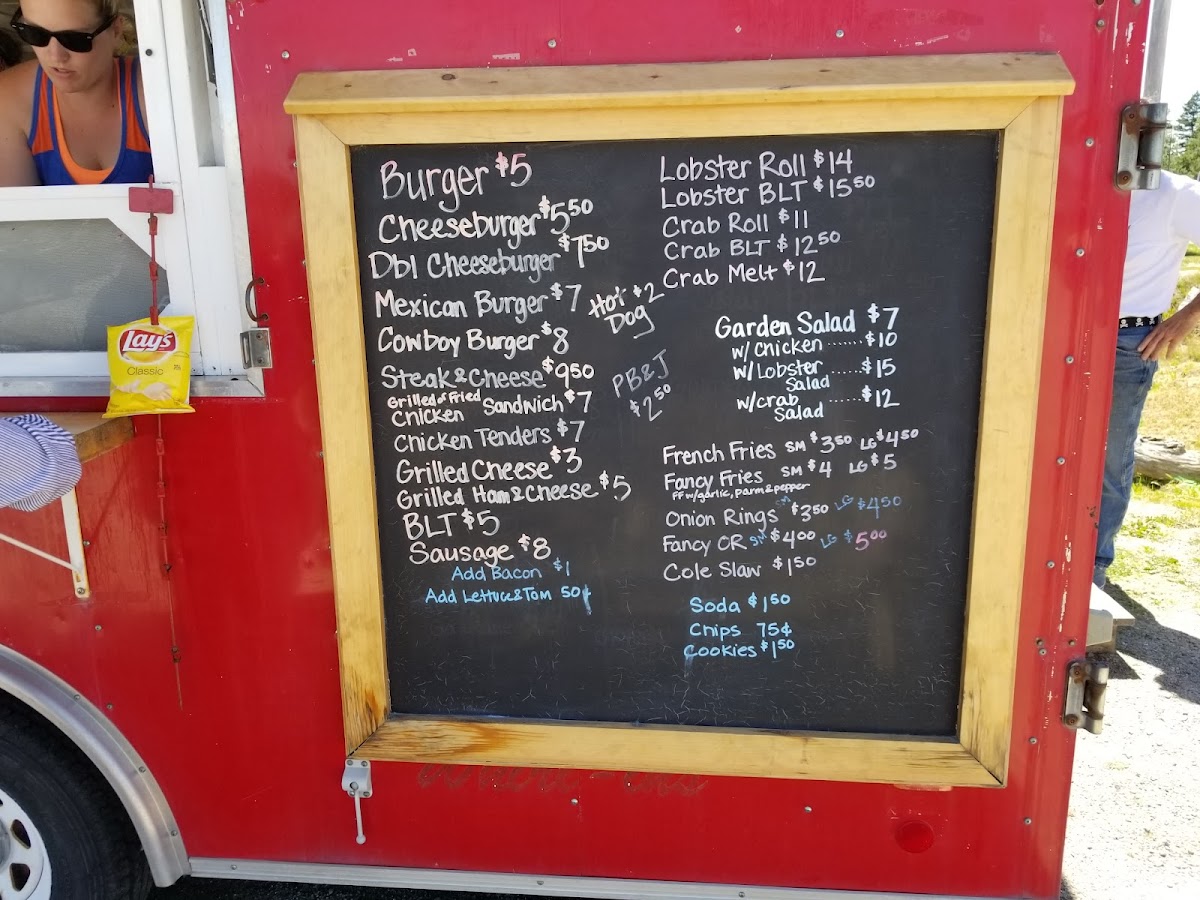 Burger $5
Cheeseburger $5.50
Dbl Cheeseburger $7.50
Mexican Burger $7
Cowboy Burger $8
Steak & Cheese $9.50
Grilled or Fried
Chicken Sandwich $7
Chicken Tenders $7
Grilled Cheese $3
Grilled Ham & Cheese $5
BLT $5
Sausage $8
Add Bacon $1
Add Lettuce & Tom 50¢
Hot $2
Dog
PB&J
$2.50
Lobster Roll $14
Lobster BLT $15.50
Crab Roll $11
Crab BLT $12.50
Crab Melt $12
Garden Salad $7
w/ Chicken ....... $10
w/ Lobster ..... $15
Salad
w/ crab ...... $12
Salad
French Fries SM $3.50 LG $4.50
Fancy Fries SM $4 LG $5
FF w/ garlic, parm & pepper
Onion Rings SM $3.50 LG $4.50
Fancy OR SM $4.00 LG $5.00
Cole Slaw $1.50
Soda $1.50
Chips 75¢
Cookies $1.50
Lay's
Classic